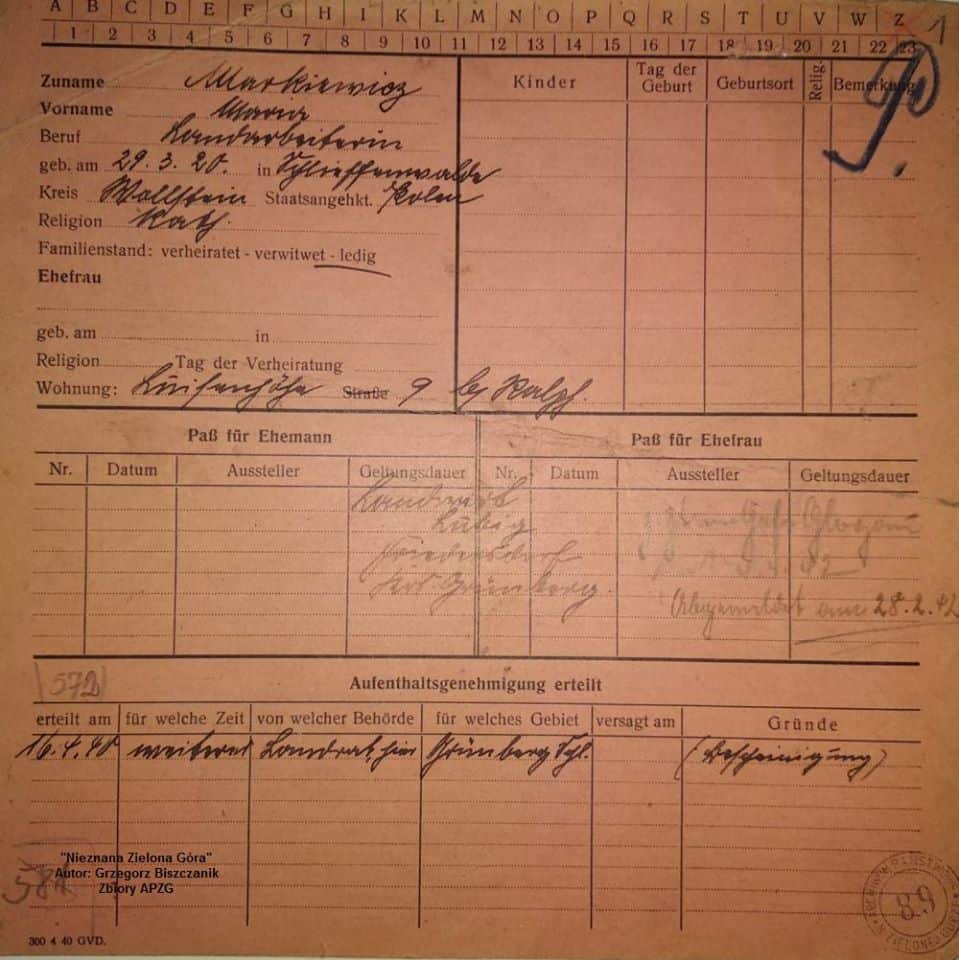 A B C D E F G H I K L M N O P Q R S T U V W Z 1
1 2 3 4 5 6 7 8 9 10 11 12 13 14 15 16 17 18 19 20 21 22 23
Zuname Markiewicz
Vorname Maria
Beruf Landarbeiterin
geb. am 29.3.20. in Schlieffenwalde
Kreis Wollstein Staatsangehkt. Polen
Religion Kath.
Familienstand: verheiratet - verwitwet - ledig
Ehefrau
geb. am in
Religion Tag der Verheiratung
Wohnung: Luisenhöhe Straße 9
Kinder Tag der Geburt Geburtsort Relig Bemerkung
P.
Paß für Ehemann Paß für Ehefrau
Nr. Datum Aussteller Geltungsdauer Nr. Datum Aussteller Geltungsdauer
Landwirt
Lubig
Friedersdorf
Krs. Grünberg.
Abgemeldet am 28.2.42
572
Aufenthaltsgenehmigung erteilt
erteilt am für welche Zeit von welcher Behörde für welches Gebiet versagt am Gründe
16.4.40 weiteres Landrat, hier Grünberg Schl. (Bescheinigung)
"Nieznana Zielona Góra"
Autor: Grzegorz Biszczanik
Zbiory APZG
89
300 4 40 GVD.